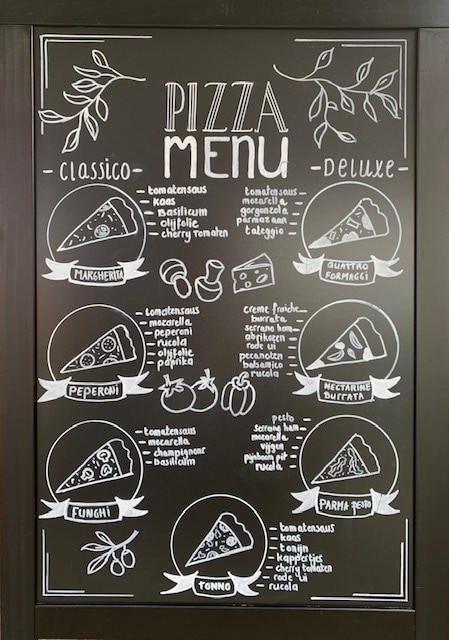 PIZZA
MENU
-CLASSICO-
tomatensaus
kaas
Basilicum
olijfolie
cherry tomaten
MARGHERITA
tomatensaus
mozarella
peperoni
rucola
olijfolie
paprika
PEPERONI
tomatensaus
mozarella
champignons
basilicum
FUNGHI
-DELUXE-
tomatensaus
mozarella
gorgonzola
parmazaan
taleggio
QUATTRO
FORMAGGI
creme fraiche
burrata
serrano ham
abrikozen
rode ui
pecannoten
balsamico
rucola
NECTARINE
BURRATA
pesto
serrano ham
mozarella
vijgen
pijnboom pit
rucola
PARMA PESTO
tomatensaus
kaas
tonijn
kappertjes
cherry tomaten
rode ui
rucola
TONNO